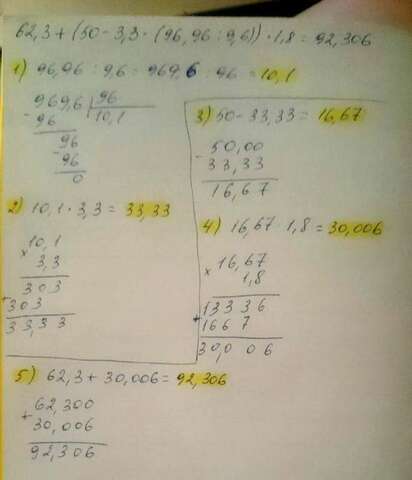 62,3 + (50 - 3,3 · (96,96 : 9,6)) · 1,8 = 92,306
1) 96,96 : 9,6 = 969,6 : 96 = 10,1
969,6 | 96
- 96 | 10,1
96
- 96
0
2) 10,1 · 3,3 = 33,33
10,1
× 3,3
303
+ 303
33,33
3) 50 - 33,33 = 16,67
- 50,00
33,33
16,67
4) 16,67 1,8 = 30,006
16,67
× 1,8
13336
+ 1667
30,006
5) 62,3 + 30,006 = 92,306
+ 62,300
30,006
92,306